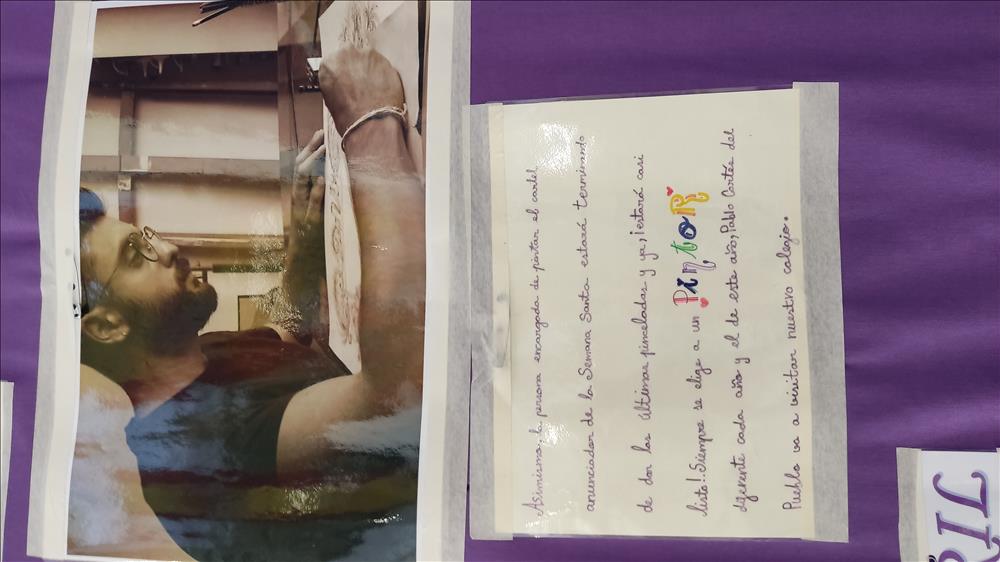 Asimismo, la persona encargada de pintar el cartel
anunciador de la Semana Santa estará terminando
de dar las últimas pinceladas y ya, ¡estará casi
listo!. Siempre se elige a un Pintor
diferente cada año y el de este año, Pablo Cortés del
Pueblo va a visitar nuestro colegio.